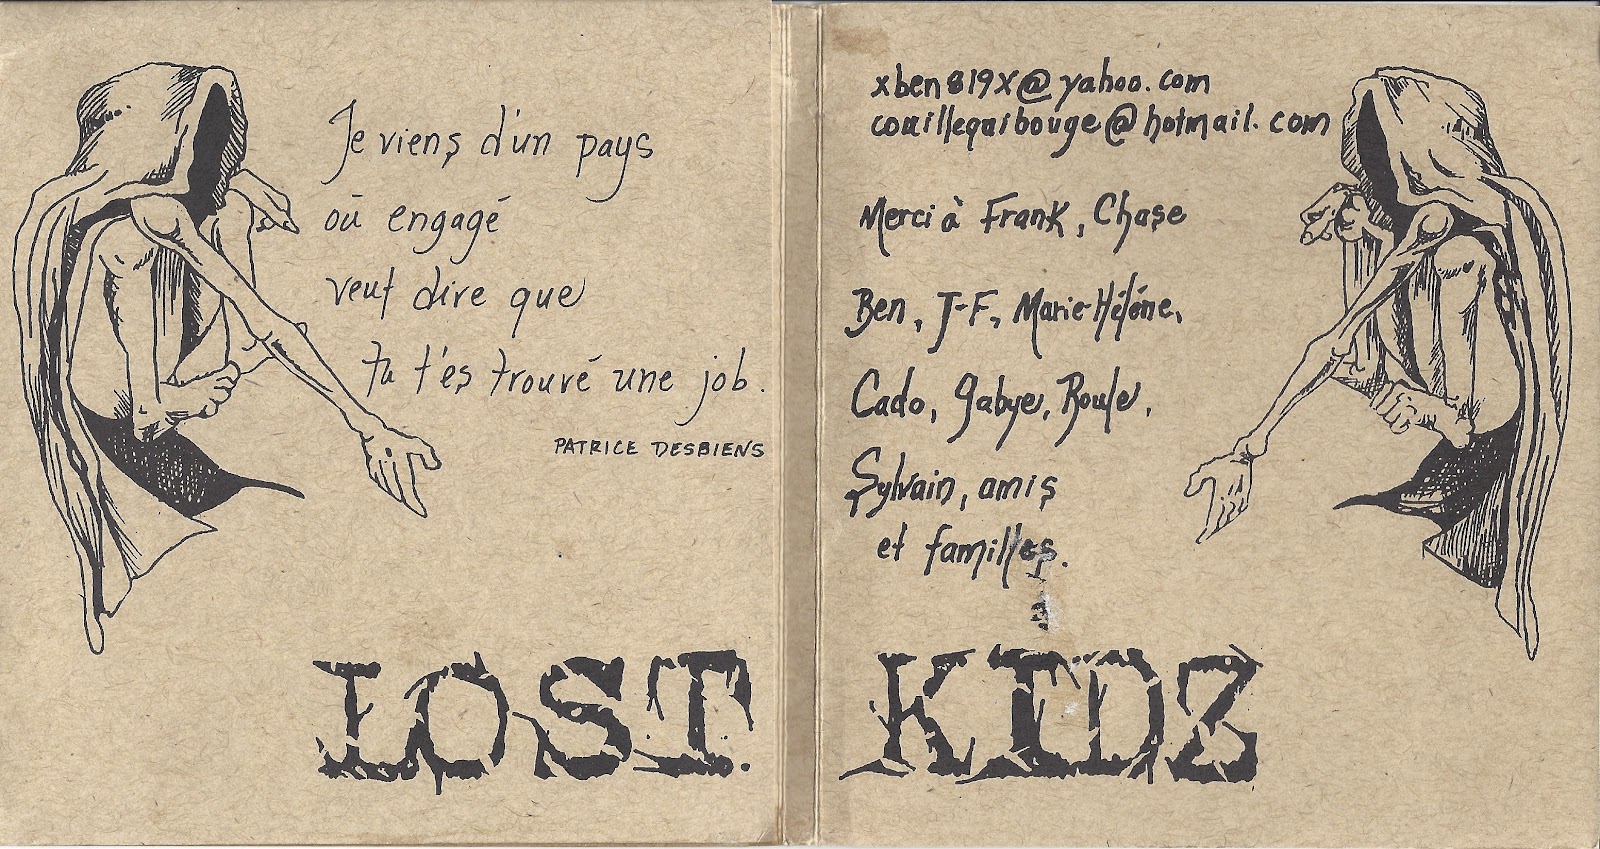 Je viens d'un pays
où engagé
veut dire que
tu t'es trouvé une job.
PATRICE DESBIENS
LOST
xben819x@yahoo.com
couillequibouge@hotmail.com
Merci à Frank, Chase
Ben, J-F, Marie-Hélène,
Cado, Gabye, Roule,
Sylvain, amis
et familles.
KIDZ